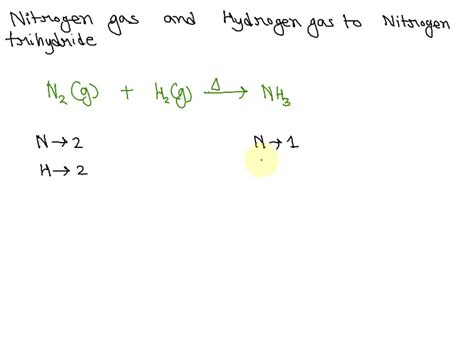 Nitrogen gas and Hydrogen gas to Nitrogen
trihydride
N₂(g) + H₂(g) Δ→ NH₃
N→2 N→1
H→2